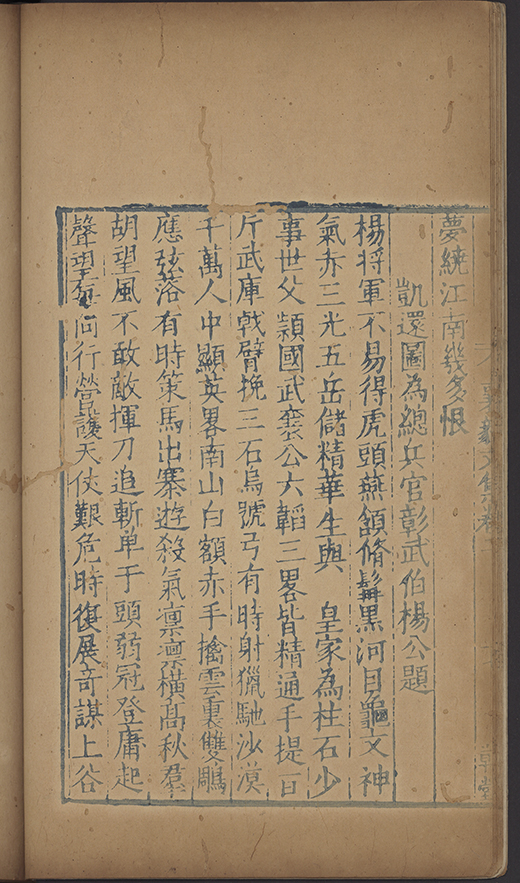 夢繞江南幾多恨
凱還圖為總兵官彰武伯楊公題
楊將軍不易得虎頭燕頷脩髯黑河目龜文神
氣赤三光五岳儲精華生與 皇家為柱石少
事世父潁國武襄公六韜三畧皆精通手提百
斤武庫戟臂挽三石烏號弓有時射獵馳沙漠
千萬人中顯英畧南山白額赤手擒雲裏雙鵰
應弦落有時策馬出寨遊殺氣凛凛橫高秋羣
胡望風不敢敵揮刀追斬单于頭弱冠登庸起
聲望每向行營護天仗艱危時復展奇謀上谷